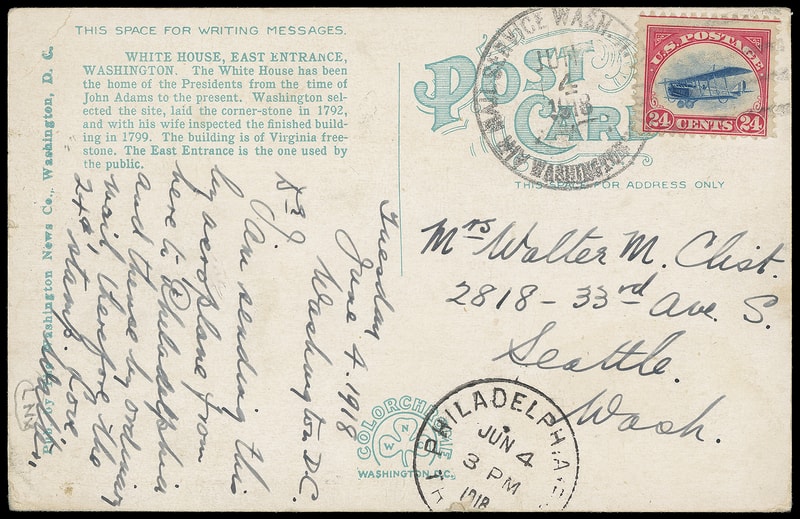 THIS SPACE FOR WRITING MESSAGES.
WHITE HOUSE, EAST ENTRANCE,
WASHINGTON. The White House has been
the home of the Presidents from the time of
John Adams to the present. Washington sel-
ected the site, laid the corner-stone in 1792,
and with his wife inspected the finished build-
ing in 1799. The building is of Virginia free-
stone. The East Entrance is the one used by
the public.
Washington News Co., Washington, D. C.
Tuesday
June 4. 1918
Washington D.C.
I am sending this
by aeroplane from
here to Philadelphia
and thence by ordinary
mail therefore the
24¢ stamp. Love
POST
CARD
THIS SPACE FOR ADDRESS ONLY
AIR MAIL SERVICE WASH.
JUN
4
1918
U.S. POSTAGE
24 CENTS 24
Mrs Walter M. Clist.
2818 - 33rd Ave S.
Seattle.
Wash.
COLORCHROME
WNC
WASHINGTON D.C.
PHILADELPHIA
JUN 4
3 PM
1918